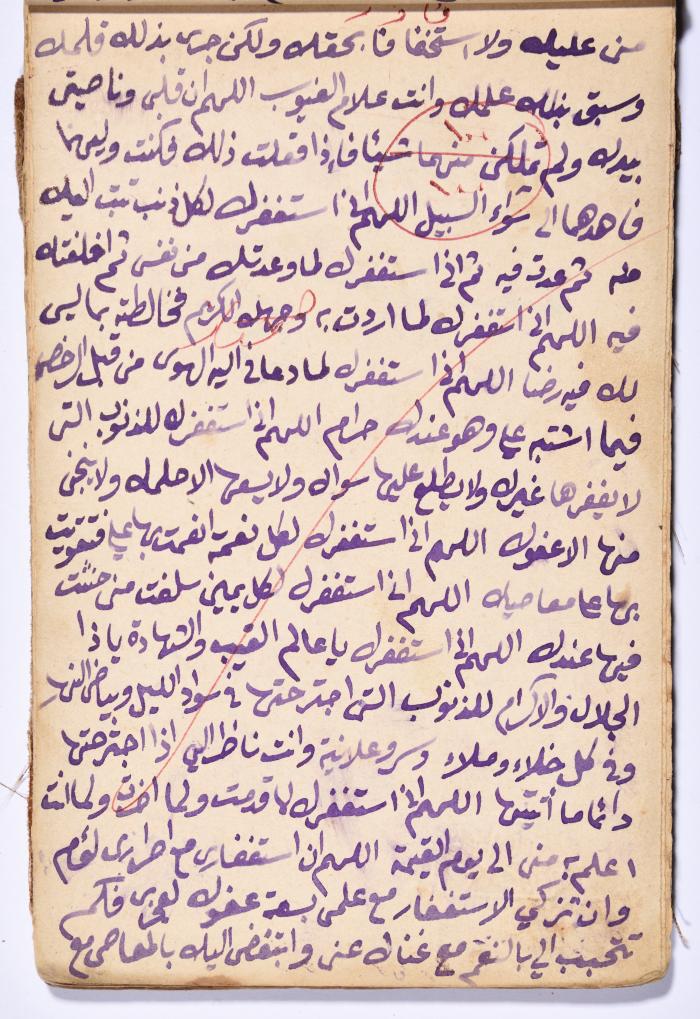 منى عليك ولا استخفافا بحقك ولكن جرى بذلك قلمك
وسبق بذلك علمك وانت علام الغيوب اللهم ان قلبى وناصيتى
بيدك ولم تملكنى منهما شيئا فاذا فعلت ذلك فكنت وليهما
فاهدهما الى سواء السبيل اللهم انى استغفرك لكل ذنب تبت اليك
منه ثم عدت فيه ثم انى استغفرك لما وعدتك من نفسى ثم اخلفتك
فيه اللهم انى استغفرك لما اردت به وجهك الكريم فخالطته بما ليس
لك فيه رضا اللهم انى استغفرك لما دعانى اليه الهوى من قبل الرخص
فيما اشتبه علي وهو عندك حرام اللهم انى استغفرك للذنوب التى
لا يغفرها غيرك ولا يطلع عليها سواك ولا يسعها الا حلمك ولا ينجى
منها الا عفوك اللهم انى استغفرك لكل نعمة انعمت بها علي فتقويت
بها على معاصيك اللهم انى استغفرك لكل يمين سلفت منى حنثت
فيها عندك اللهم انى استغفرك يا عالم الغيب والشهادة يا ذا
الجلال والاكرام للذنوب التى اجترحتها فى سواد الليل وبياض النهار
وفى كل خلاء وملاء وسر وعلانية وانت ناظر الي اذا اجترحتها
دائما ما أتيتها اللهم انى استغفرك لما قدمت ولما اخرت ولما انت
اعلم به منى الى يوم القيمة اللهم ان استغفارى مع اصرارى لؤم
وان تركي الاستغفار مع علمى بسعة عفوك لعجز فكم
تتحبب الي بالنعم مع غناك عنى واتبغض اليك بالمعاصى مع